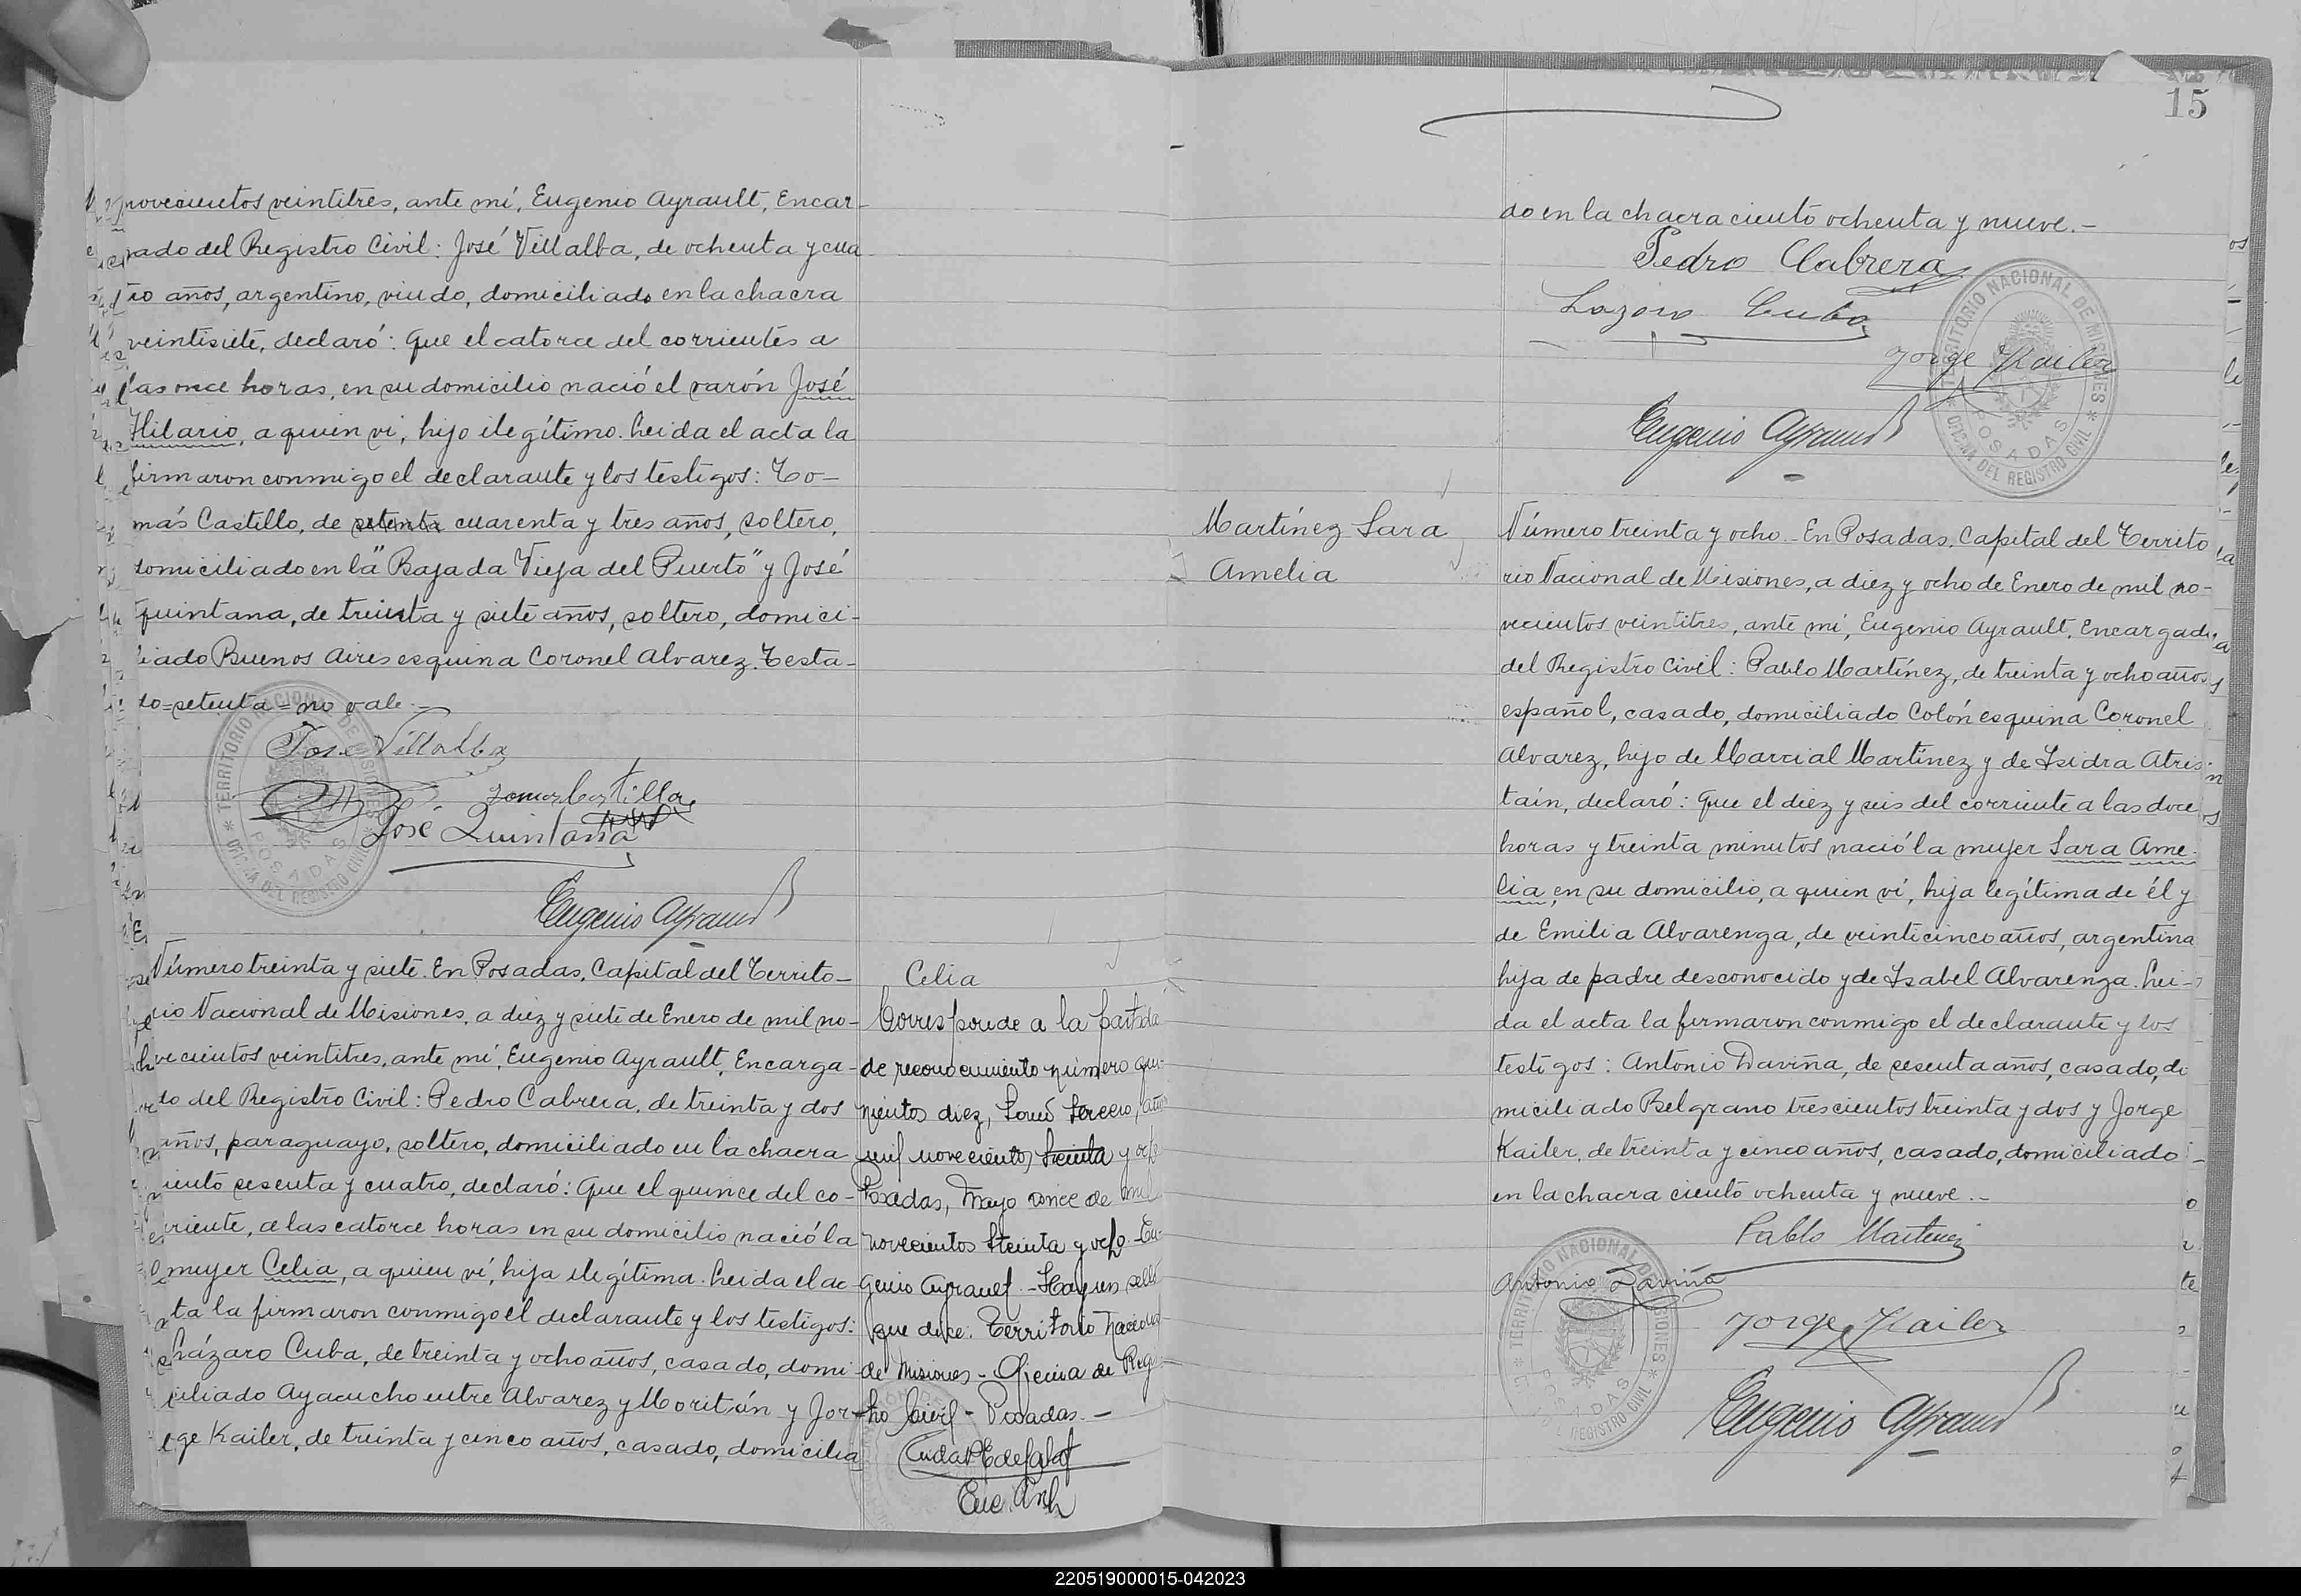 novecientos veintitres, ante mí, Eugenio Ayrault, Encar-
gado del Registro Civil: José Villalba, de ochenta y cua
tro años, argentino, viudo, domiciliado en la chacra
veintisiete, declaró: Que el catorce del corrientes a
las once horas, en su domicilio nació el varón José
Hilario, a quien vi, hijo ilegítimo. Leida el acta la
firmaron conmigo el declarante y los testigos: To-
más Castillo, de setenta cuarenta y tres años, soltero,
domiciliado en la "Bajada Vieja del Puerto" y José
Quintana, de treinta y siete años, soltero, domici-
liado Buenos Aires esquina Coronel Alvarez. Testa-
do=setenta=no vale.-
José Villalba
Tomas Castillo
José Quintana
Eugenio Ayrault
Número treinta y siete. En Posadas, Capital del Territo-
rio Nacional de Misiones, a diez y siete de Enero de mil no-
vecientos veintitres, ante mí, Eugenio Ayrault, Encarga-
do del Registro Civil: Pedro Cabrera, de treinta y dos
años, paraguayo, soltero, domiciliado en la chacra
ciento sesenta y cuatro, declaró: Que el quince del co-
rriente, a las catorce horas en su domicilio nació la
mujer Celia, a quien ví, hija ilegítima. Leida el ac-
ta la firmaron conmigo el declarante y los testigos:
Lázaro Cuba, de treinta y ocho años, casado, domi-
ciliado Ayacucho entre Alvarez y Moritán y Jor-
ge Kailer, de treinta y cinco años, casado, domicilia
Celia
Corresponde a la partida
de reconocimiento número qui-
nientos diez, tomo tercero, año
mil novecientos treinta y ocho
Posadas, Mayo once de mil
novecientos treinta y ocho - Eu-
genio Ayrault - Hay un sello
que dice: Territorio Nacional
de Misiones - Oficina de Regis
tro Civil - Posadas. -
Enc. Arch
TERRITORIO NACIONAL DE MISIONES
POSADAS
OFICINA DEL REGISTRO CIVIL
15
do en la chacra ciento ochenta y nueve.-
Pedro Cabrera
Lazaro Cuba
Jorge Kailer
Eugenio Ayrault
TERRITORIO NACIONAL DE MISIONES
POSADAS
OFICINA DEL REGISTRO CIVIL
Martínez Sara
Amelia
Número treinta y ocho.- En Posadas, Capital del Territo
rio Nacional de Misiones, a diez y ocho de Enero de mil no-
vecientos veintitres, ante mí, Eugenio Ayrault, Encargado
del Registro Civil: Pablo Martínez, de treinta y ocho años
español, casado, domiciliado Colón esquina Coronel
Alvarez, hijo de Marcial Martínez y de Isidra Atris
tain, declaró: Que el diez y seis del corriente a las doce
horas y treinta minutos nació la mujer Sara Ame-
lia, en su domicilio, a quien ví, hija legítima de él y
de Emilia Alvarenga, de veinticinco años, argentina
hija de padre desconocido y de Isabel Alvarenga. Lei-
da el acta la firmaron conmigo el declarante y los
testigos: Antonio Daviña, de sesenta años, casado, do
miciliado Belgrano trescientos treinta y dos y Jorge
Kailer, de treinta y cinco años, casado, domiciliado
en la chacra ciento ochenta y nueve.-
Pablo Martinez
Antonio Daviña
Jorge Kailer
Eugenio Ayrault
TERRITORIO NACIONAL DE MISIONES
POSADAS
OFICINA DEL REGISTRO CIVIL
220519000015-042023